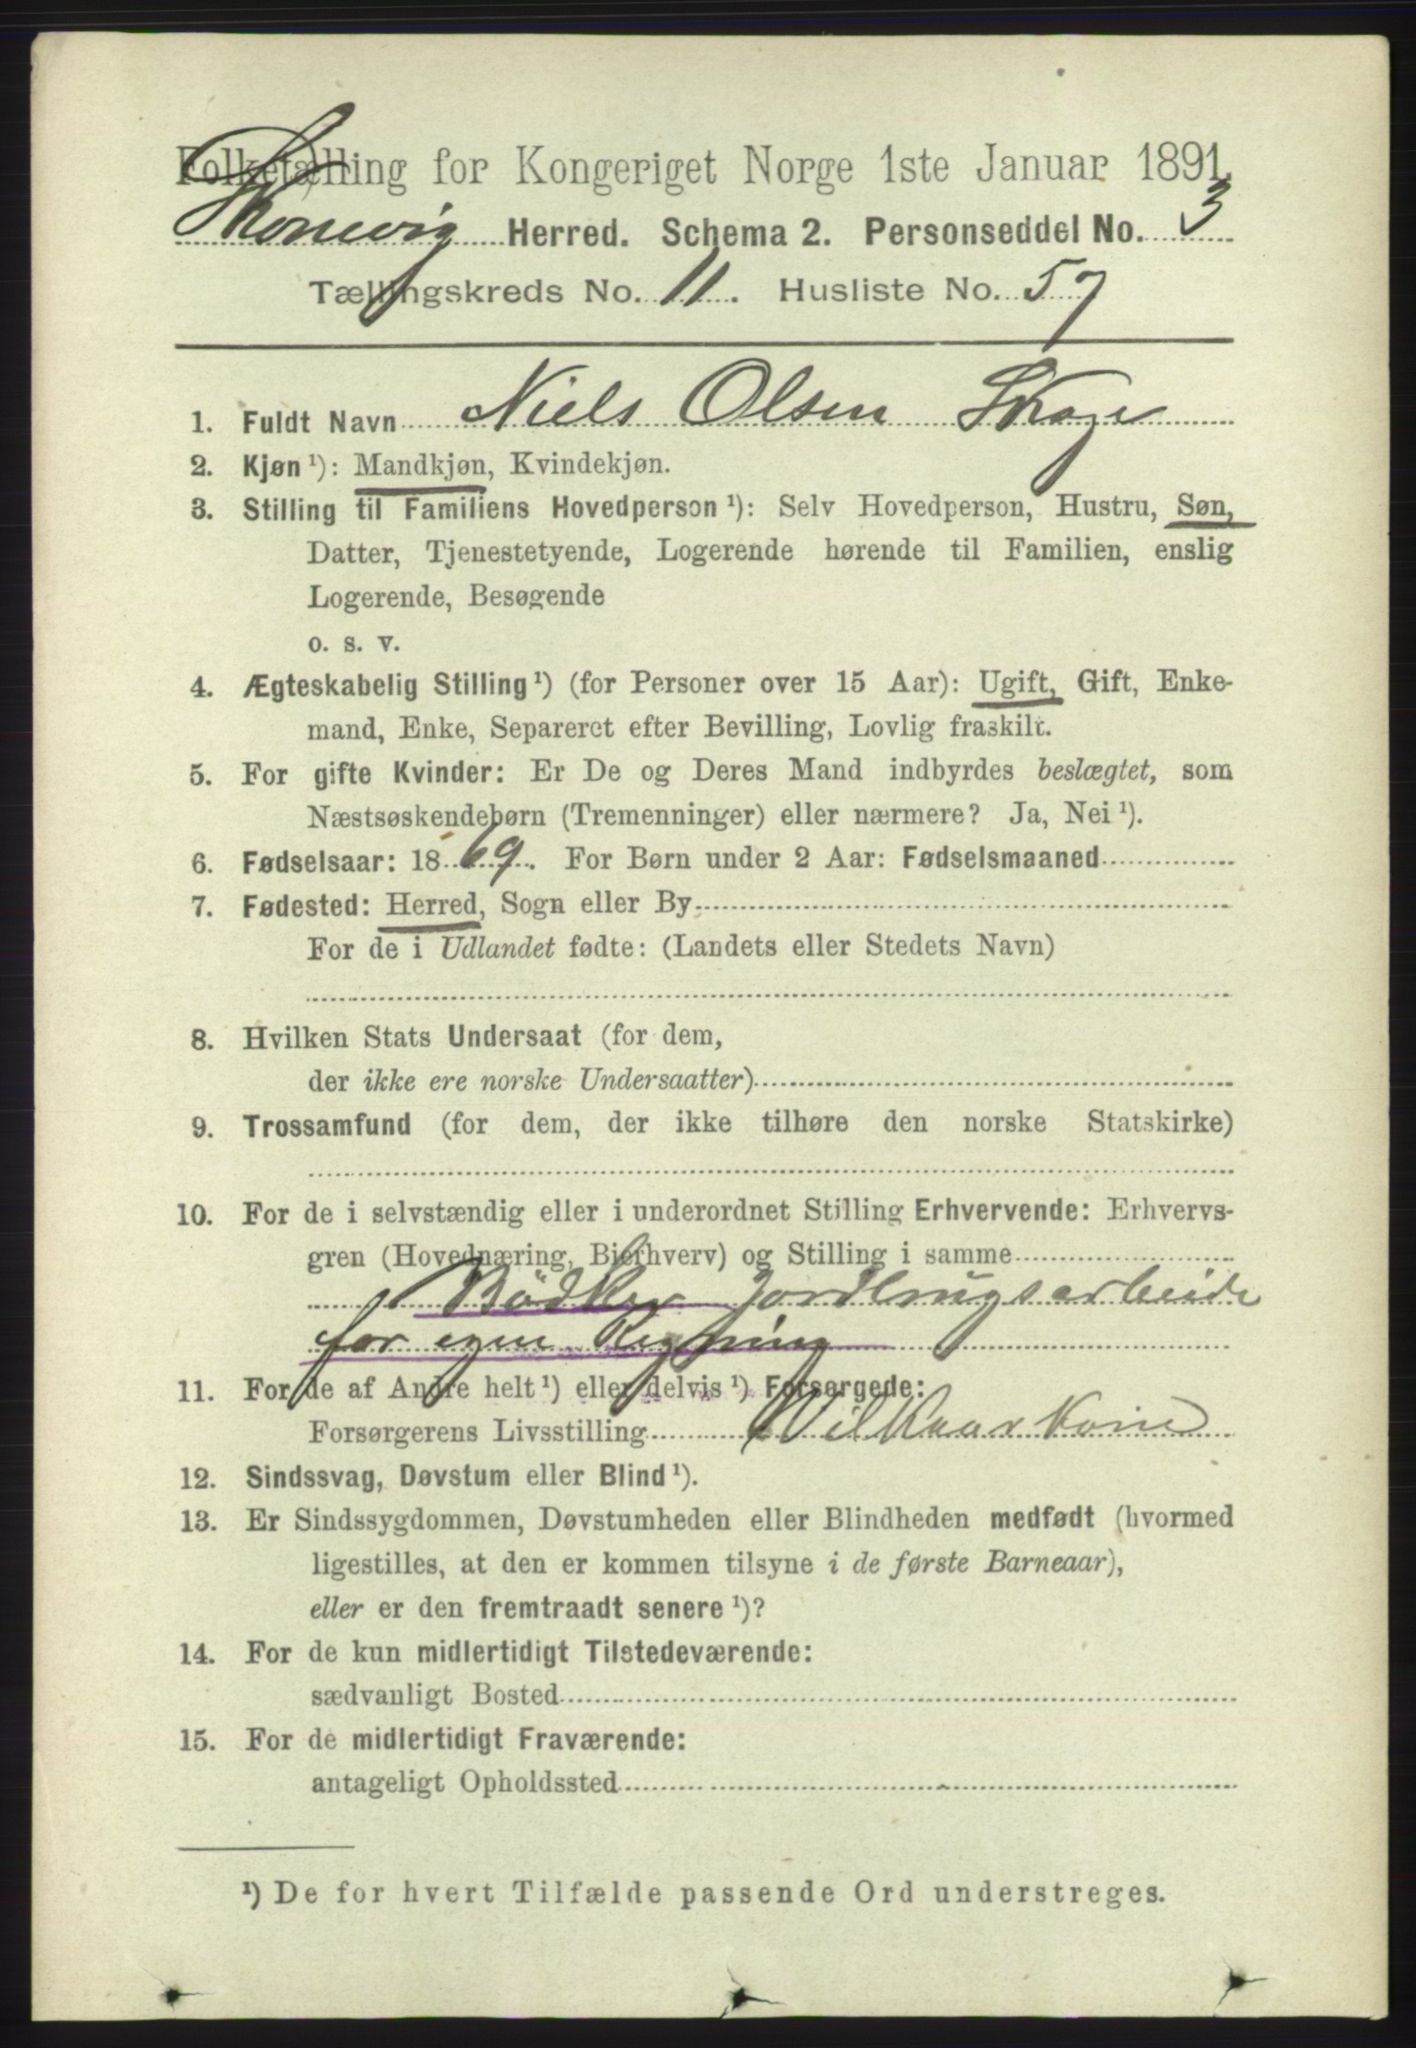 Folketælling for Kongeriget Norge 1ste Januar 1891.
Skonevig Herred. Schema 2. Personseddel No. 3
Tællingskreds No. 11. Husliste No. 57
1. Fuldt Navn Niels Olsen Skage
2. Kjøn ¹): Mandkjøn, Kvindekjøn.
3. Stilling til Familiens Hovedperson ¹): Selv Hovedperson, Hustru, Søn,
Datter, Tjenestetyende, Logerende hørende til Familien, enslig
Logerende, Besøgende
o. s. v.
4. Ægteskabelig Stilling ¹) (for Personer over 15 Aar): Ugift, Gift, Enke-
mand, Enke, Separeret efter Bevilling, Lovlig fraskilt.
5. For gifte Kvinder: Er De og Deres Mand indbyrdes beslægtet, som
Næstsøskendebørn (Tremenninger) eller nærmere? Ja, Nei ¹).
6. Fødselsaar: 1869. For Børn under 2 Aar: Fødselsmaaned
7. Fødested: Herred, Sogn eller By
For de i Udlandet fødte: (Landets eller Stedets Navn)
8. Hvilken Stats Undersaat (for dem,
der ikke ere norske Undersaatter)
9. Trossamfund (for dem, der ikke tilhøre den norske Statskirke)
10. For de i selvstændig eller i underordnet Stilling Erhvervende: Erhvervs-
gren (Hovednæring, Bierhverv) og Stilling i samme
Bödker Jordbrugsarbeide
for egen Regning
11. For de af Andre helt ¹) eller delvis ¹) Forsørgede:
Forsørgerens Livsstilling Vilkaarskone
12. Sindssvag, Døvstum eller Blind ¹).
13. Er Sindssygdommen, Døvstumheden eller Blindheden medfødt (hvormed
ligestilles, at den er kommen tilsyne i de første Barneaar),
eller er den fremtraadt senere ¹)?
14. For de kun midlertidigt Tilstedeværende:
sædvanligt Bosted
15. For de midlertidigt Fraværende:
antageligt Opholdssted
¹) De for hvert Tilfælde passende Ord understreges.